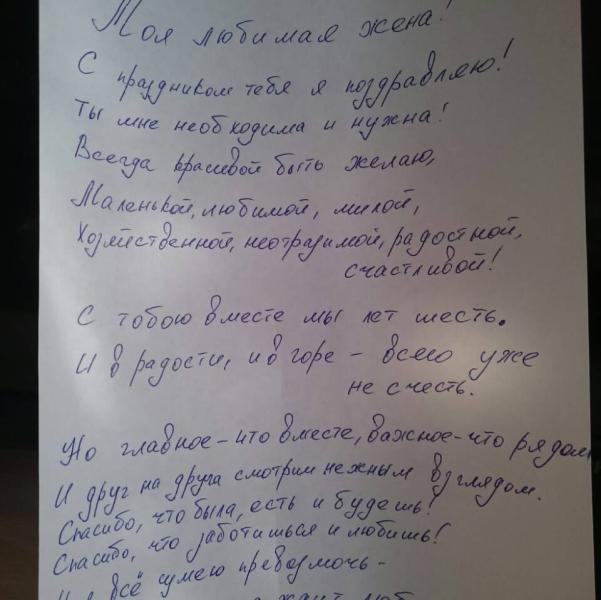 Моя любимая жена!
С праздником тебя я поздравляю!
Ты мне необходима и нужна!
Всегда красивой быть желаю,
Маленькой, любимой, милой,
Хозяйственной, неотразимой, радостной,
счастливой!
С тобою вместе мы лет шесть.
И в радости, и в горе – всего уже
не счесть.
Но главное – что вместе, важное – что рядом
И друг на друга смотрим нежным взглядом.
Спасибо, что была, есть и будешь!
Спасибо, что заботишься и любишь!
всё сумею превозмочь –